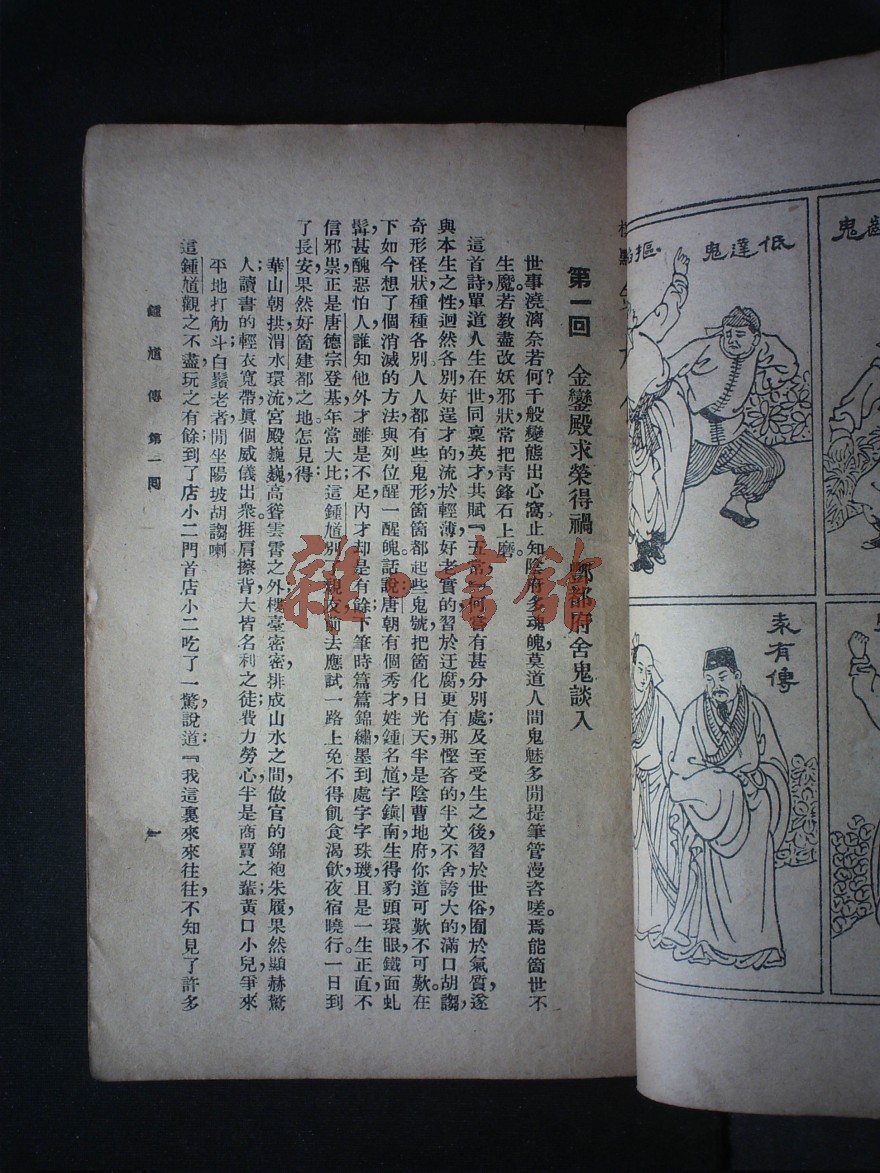 第一回　金鑾殿求榮得禍　酆都府舍鬼談人
世事澆漓奈若何？千般變態出心窩止知陰府多魂魄，莫道人間鬼魅多閒提筆管漫咨嗟。焉能箇世不
生魔。若教盡改妖邪狀常把青鋒石上磨。
這首詩，單道人生在世同稟英才共賦『五常，』何嘗有甚分別處；及至受生之後，習於世俗，囿於氣質，遂
與本生之性，迥然各別，好逞才的流於輕薄，好老實的習於迂腐，更有那慳吝的半文不舍，誇大的滿口胡謅，
奇形怪狀，種種各別，人人都有些鬼形，箇箇都起些鬼號，把箇化日光天，半是陰曹地府，你道可歎不可歎。在
下如今想了個消滅的方法，與列位醒一醒魄。話說唐朝有個秀才，姓鍾名馗，字鎮南，生得豹頭環眼，鐵面虬
髯，甚醜惡怕人，誰知他外才雖是不足，內才却是有餘；下筆時篇篇錦繡，墨到處字字珠璣，且是一生正直，不
信邪祟。正是唐德宗登基，年當大比；這鍾馗別親友前去應試一路上免不得飢食渴飲，夜宿曉行。一日到
了長安，果然好箇建都之地。怎見得：
華山朝拱，渭水環流，宮殿巍巍，高聳雲霄之外；樓臺密密，排成山水之間。做官的錦袍朱履，果然顯赫驚
人；讀書的輕衣寬帶，眞個威儀出衆。捱肩擦背，大皆名利之徒；費力勞心，半是商賈之輩；黃口小兒，爭來
平地打觔斗；白鬚老者，閒坐陽坡胡謅喇
這鍾馗觀之不盡，玩之有餘，到了店小二門首，店小二吃了一驚，說道：『我這裏來來往往，不知見了許多
鍾馗傳　第一回
一
雜·書館
低達鬼
摳
鬼
未有傳